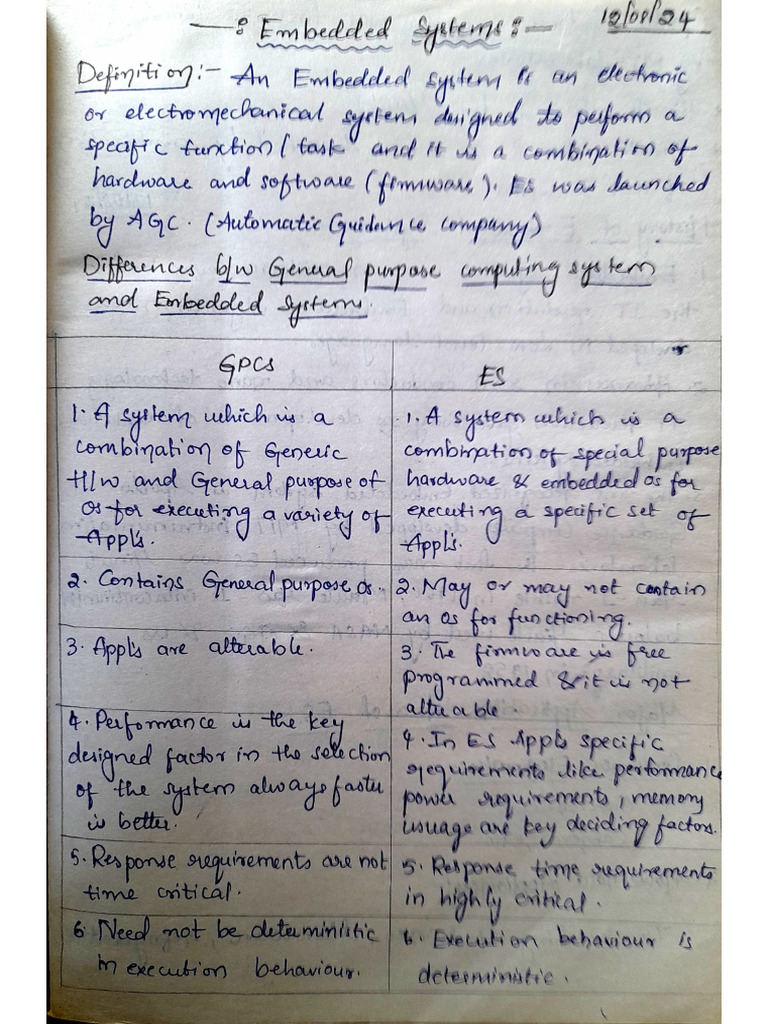 —: Embedded Systems :— 12/08/24
Definition:- An Embedded system is an electronic
or electromechanical system designed to perform a
specific function/task and it is a combination of
hardware and software (firmware). ES was launched
by AGC. (Automatic Guidance company)
Differences b/w General purpose computing system
and Embedded Systems.
GPCS
1. A system which is a
combination of Generic
H/w and General purpose of
os for executing a variety of
Appl's.
2. Contains General purpose os.
3. Appl's are alterable.
4. Performance is the key
designed factor in the selection
of the system always faster
is better.
5. Response requirements are not
time critical.
6 Need not be deterministic
in execution behaviour.
ES
1. A system which is a
combination of special purpose
hardware & embedded os for
executing a specific set of
Appl's.
2. May or may not contain
an os for functioning.
3. The firmware is free
programmed & it is not
alterable
4. In ES Appl's specific
requirements like performance
power requirements, memory
usuage are key deciding factors.
5. Response time requirements
in highly critical.
6. Execution behaviour is
deterministic.